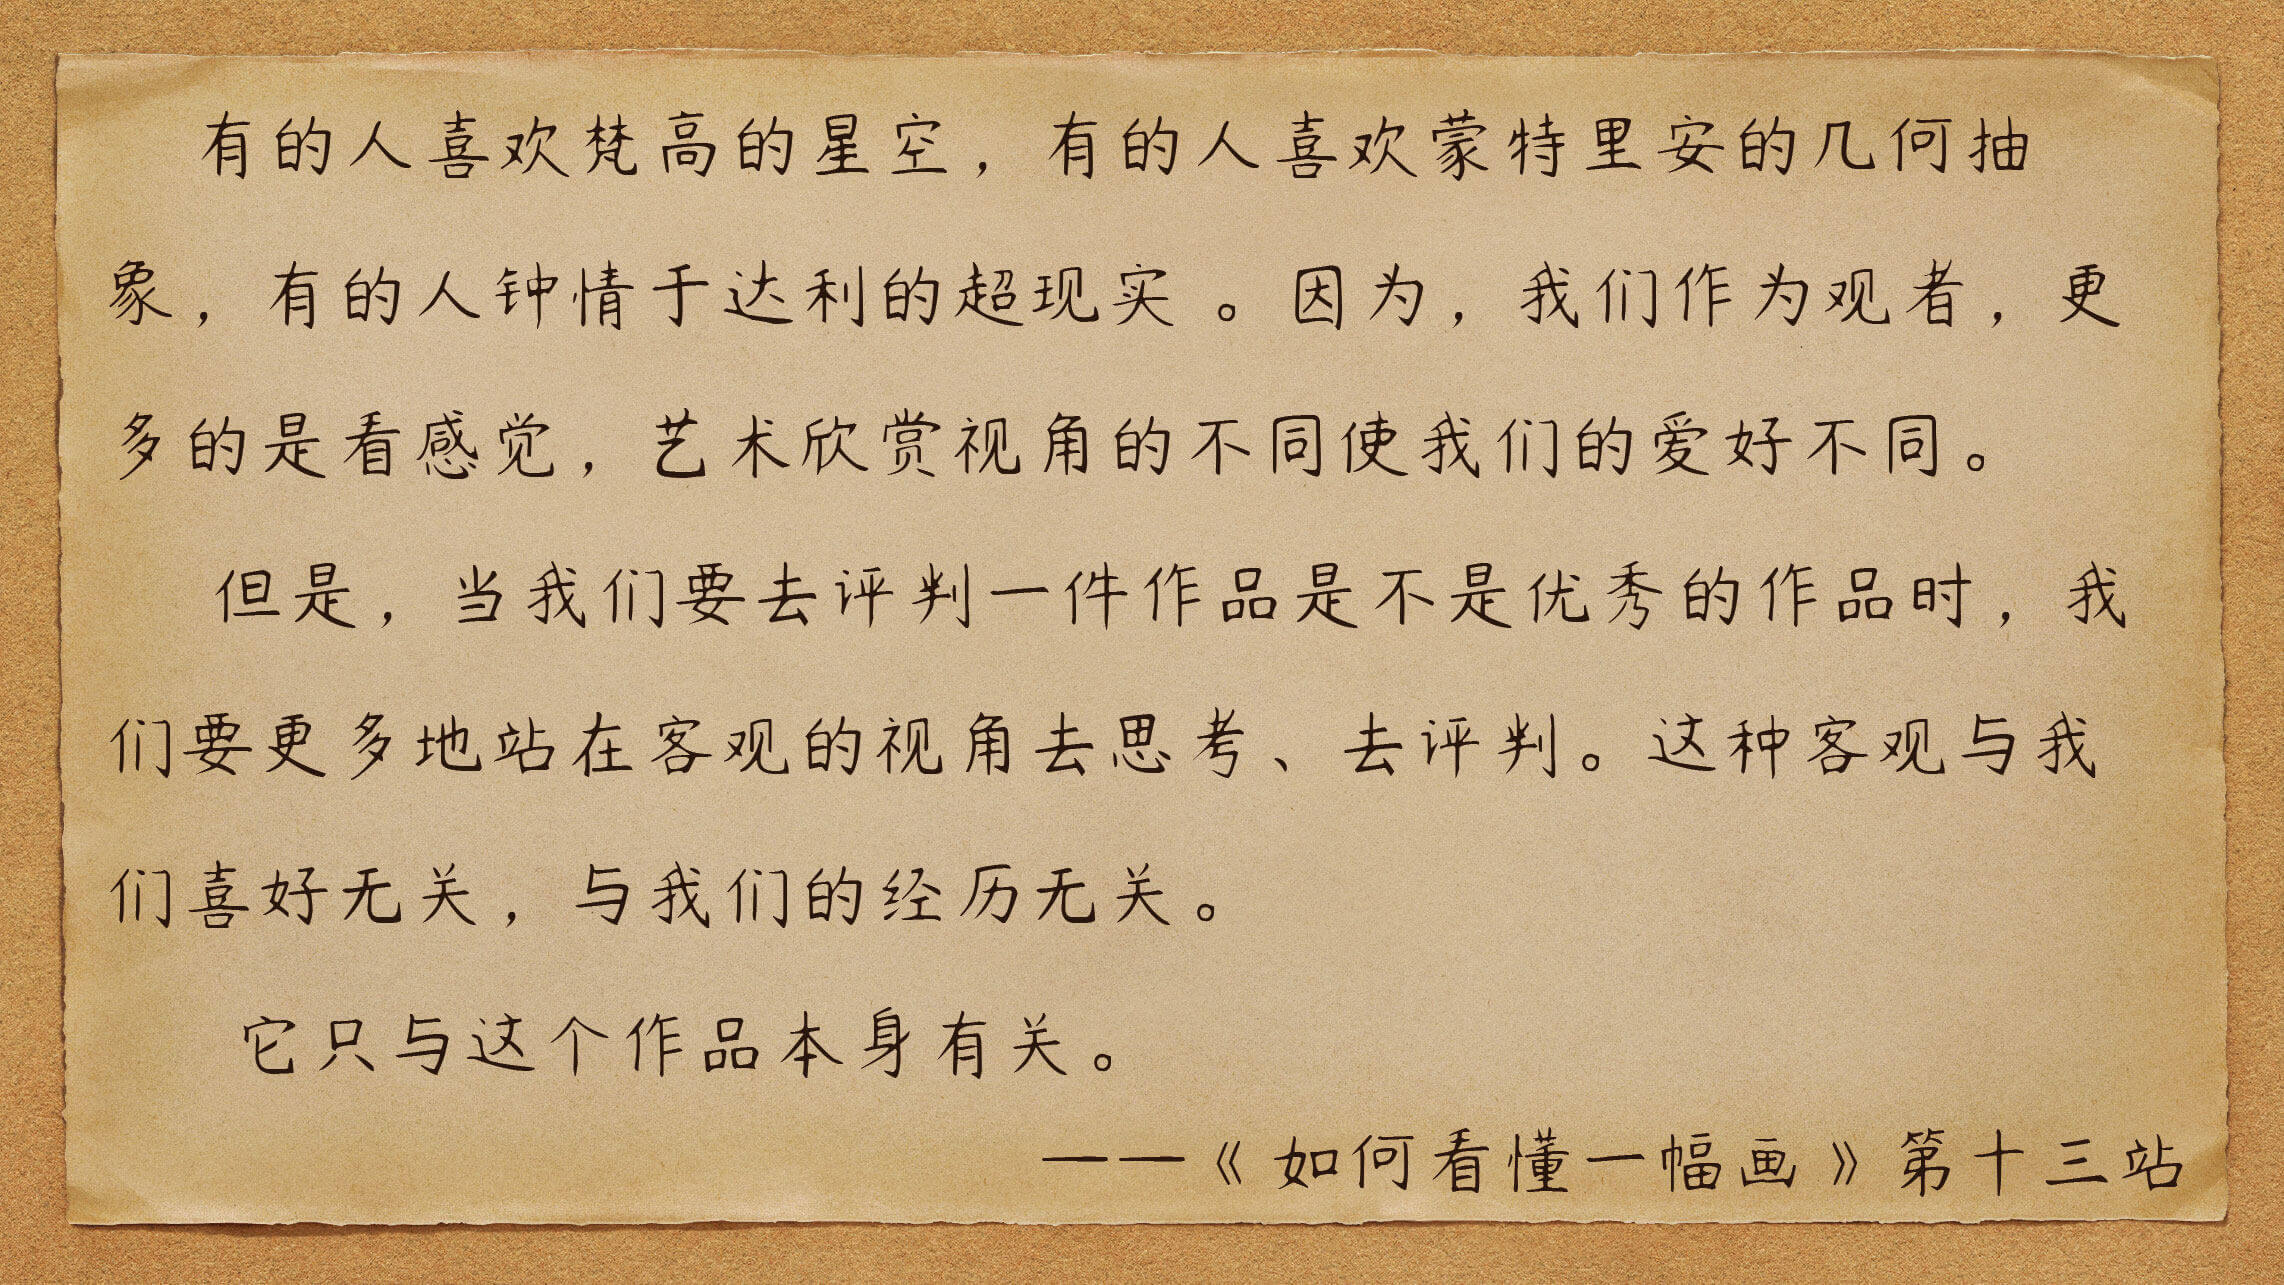 有的人喜欢梵高的星空，有的人喜欢蒙特里安的几何抽
象，有的人钟情于达利的超现实。因为，我们作为观者，更
多的是看感觉，艺术欣赏视角的不同使我们的爱好不同。
但是，当我们要去评判一件作品是不是优秀的作品时，我
们要更多地站在客观的视角去思考、去评判。这种客观与我
们喜好无关，与我们的经历无关。
它只与这个作品本身有关。
——《如何看懂一幅画》第十三站